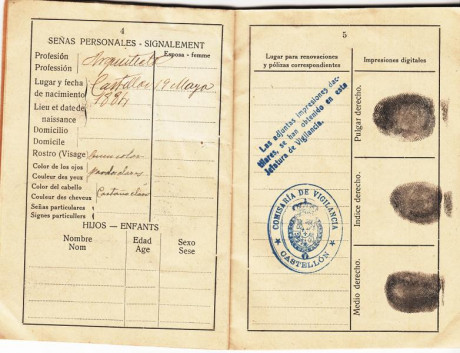 4
SEÑAS PERSONALES - SIGNALEMENT
Esposa - femme
Profesión
Profession
Arquitecto
Lugar y fecha
de nacimiento
Castellón 19 Mayo
1884
Lieu et date de
naissance
Domicilio
Domicile
Rostro (Visage)
buen color
Color de los ojos
Couleur des yeux
Color del cabello
Couleur des cheveux
Señas particulares
Signes particuliers
HIJOS — ENFANTS
Nombre
Nom
Edad
Age
Sexo
Sese
5
Lugar para renovaciones
y pólizas correspondientes
Impresiones digitales
Las adjuntas impresiones dac-
tilares, se han obtenido en esta
Jefatura de Vigilancia.
COMISARÍA DE VIGILANCIA
CASTELLÓN
Pulgar derecho.
Indice derecho.
Medio derecho.